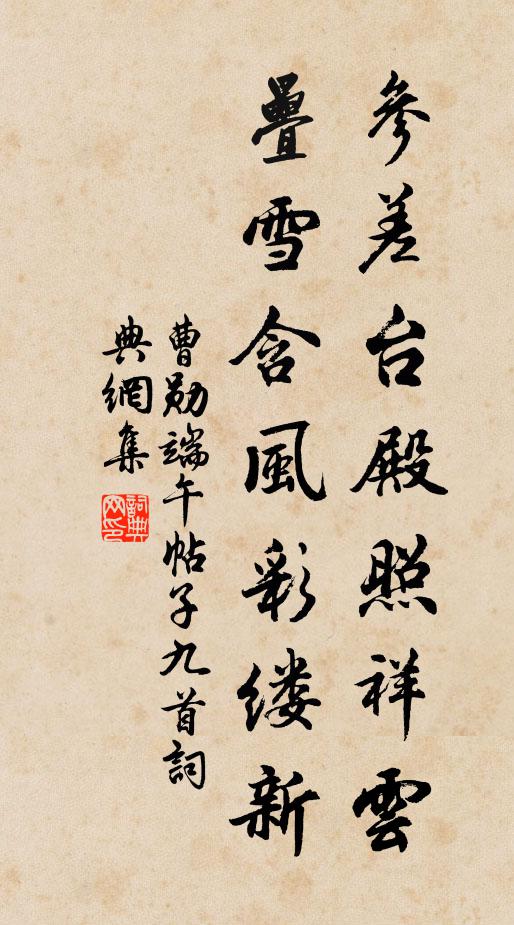 參差台殿照祥雲
疊雪含風彩缕新
曹勛端午帖子九首詞
典網集
詞典网印